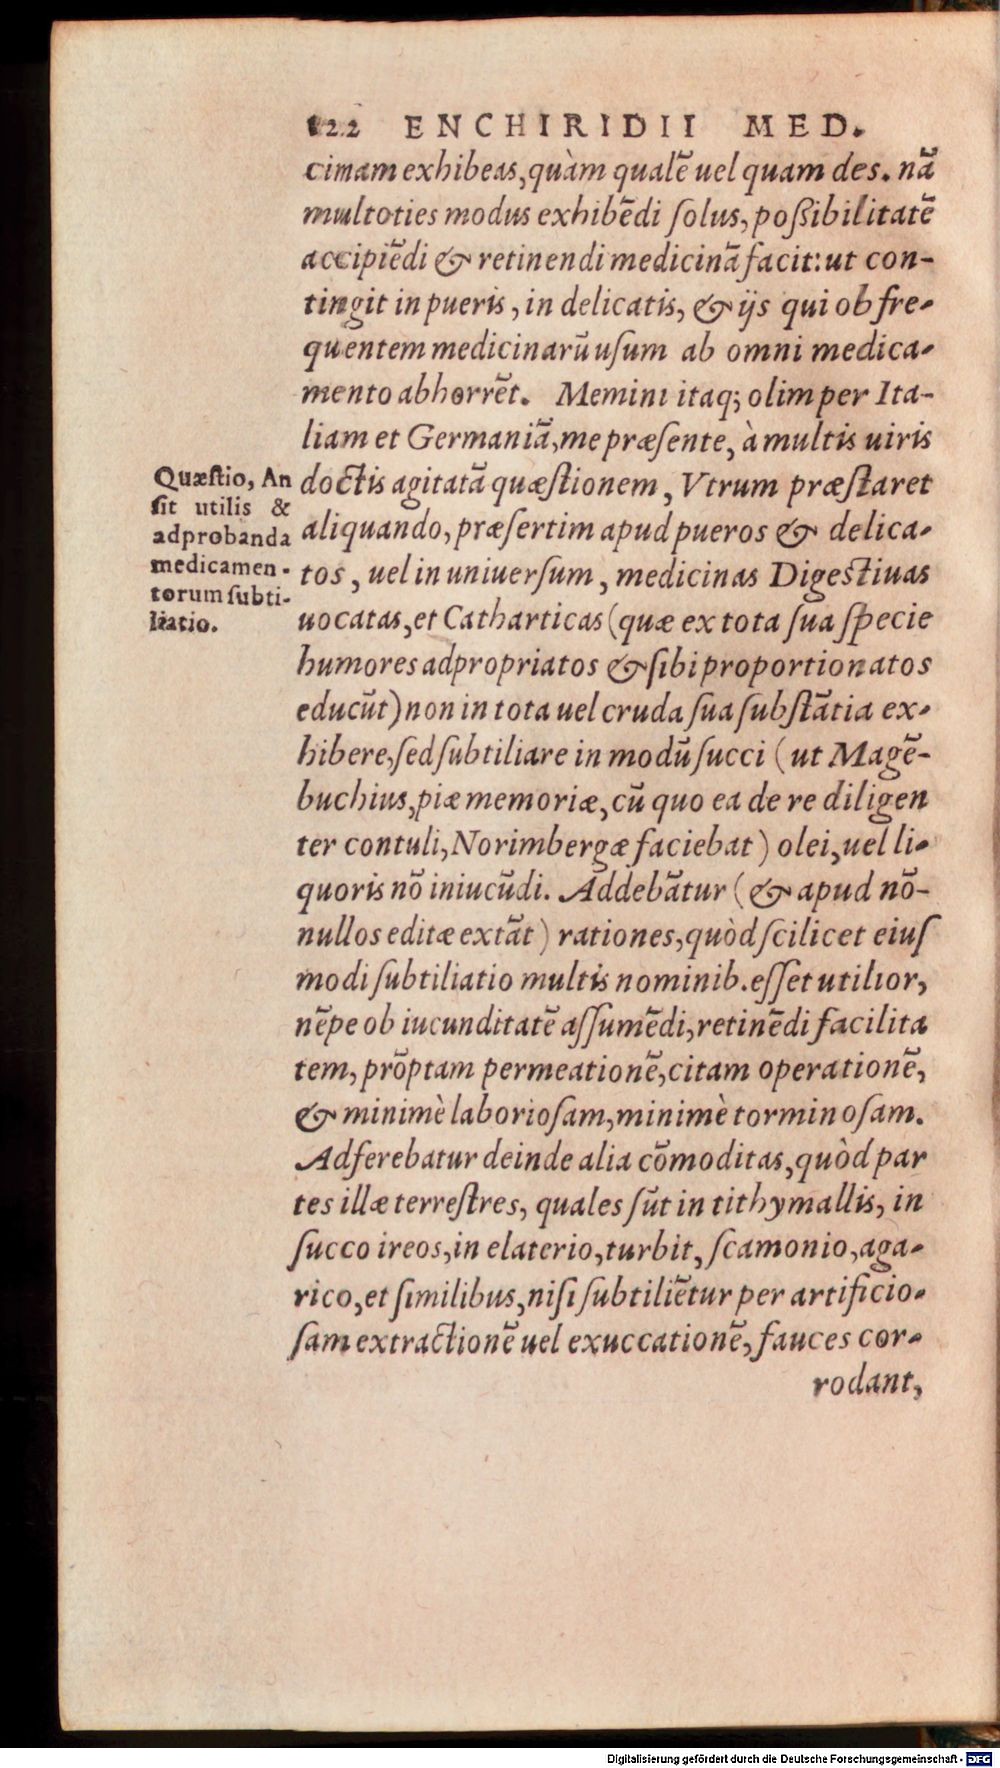 122 ENCHIRIDII MED.
cimam exhibeas, quàm qualẽ uel quam des. nã
multoties modus exhibẽdi ſolus, poßibilitatẽ
accipiẽdi & retinendi medicinã facit: ut con-
tingit in pueris, in delicatis, & ijs qui ob fre-
quentem medicinarũ uſum ab omni medica-
mento abhorrẽt. Memini itaq; olim per Ita-
liam et Germaniã, me præſente, à multis uiris
doctis agitatã quæſtionem, Vtrum præſtaret
aliquando, præſertim apud pueros & delica-
tos, uel in uniuerſum, medicinas Digeſtiuas
uocatas, et Catharticas (quæ ex tota ſua ſpecie
humores adpropriatos & ſibi proportionatos
educũt) non in tota uel cruda ſua ſubſtãtia ex-
hibere, ſed ſubtiliare in modũ ſucci (ut Magẽ-
buchius, piæ memoriæ, cũ quo ea de re diligen
ter contuli, Norimbergæ faciebat) olei, uel li-
quoris nõ iniucũdi. Addebãtur (& apud nõ-
nullos editæ extãt) rationes, quòd ſcilicet eiuſ
modi ſubtiliatio multis nominib. eſſet utilior,
nẽpe ob iucunditatẽ aſſumẽdi, retinẽdi facilita
tem, prõptam permeationẽ, citam operationẽ,
& minimè laborioſam, minimè torminoſam.
Adferebatur deinde alia cõmoditas, quòd par
tes illæ terreſtres, quales ſũt in tithymallis, in
ſucco ireos, in elaterio, turbit, ſcamonio, aga-
rico, et ſimilibus, niſi ſubtiliẽtur per artificio-
ſam extractionẽ uel exuccationẽ, fauces cor-
rodant,
Quæſtio, An
ſit utilis &
adprobanda
medicamen-
torum ſubti-
liatio.
Digitalisierung gefördert durch die Deutsche Forschungsgemeinschaft - DFG